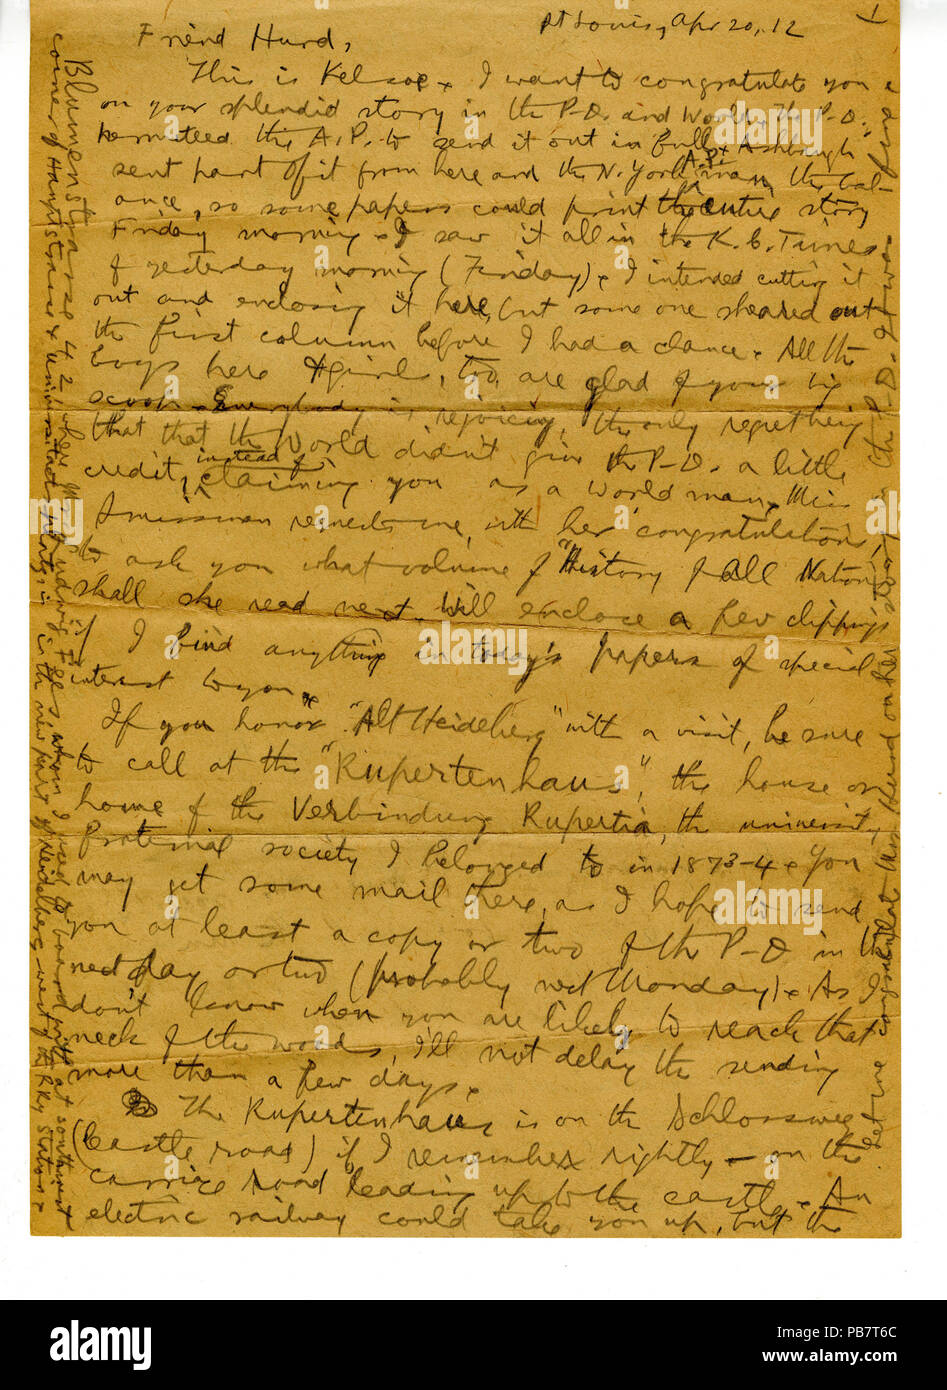 St Louis, Apr 20, 12
1
Friend Hurd,
This is Kelsoe. I want to congratulate you
on your splendid story in the P-D. and World. The P-D.
permitted the A.P. to send it out in full. Ashbaugh
sent part of it from here and the N. York A.P. man the bal-
ance, so some papers could print the entire story
Friday morning. I saw it all in the K.C. Times
of yesterday morning (Friday). I intended cutting it
out and enclosing it here, but some one sheared out
the first column before I had a chance. All the
boys here & girls, too, are glad of your big
scoop. Everybody is rejoicing, the only regret being
that that the World didn't give the P-D. a little
credit, instead of claiming you as a World man. Miss
requests me, with her congratulations,
to ask you what volume of "History of All Nations
shall she read next. Will enclose a few clippings
if I find anything in today's papers of special
interest to you.
If you honor "Alt Heidelberg" with a visit, be sure
to call at the "Rupertenhaus", the house or
home of the Verbindung Rupertia, the university
fraternal society I belonged to in 1873-4. You
may get some mail there, as I hope to send
you at least a copy or two of the P-D in the
next day or two (probably next Monday). As I
don't know when you are likely to reach that
neck of the woods, I'll not delay the sending
more than a few days.
The Rupertenhaus is on the Schlossweg
(Castle road) if I remember rightly — on the
carriage road leading up to the castle. An
electric railway could take you up, but the
Blumenstrasse 42 where Ludwig when I used to board with, at southwest
corner of Hauptstrasse & is in the new part of Heidelberg west of the Rky station.
Let me congratulate Mrs. Hurd on her story in the P-D. It was a fine
alamy
Image ID: PB7T6C
www.alamy.com